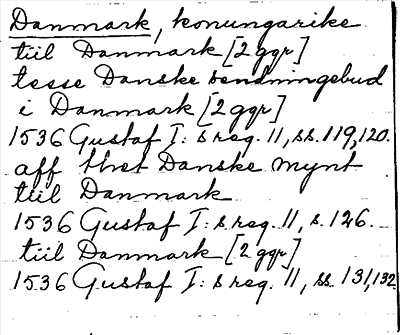 Danmark, konungarike
tiil Danmark [2 ggr]
tesse Danske sendningebud
i Danmark [2 ggr]
1536 Gustaf I:s reg. 11, ss. 119, 120.
aff thet Danske mynt
tiil Danmark
1536 Gustaf I:s reg. 11, s. 126.
tiil Danmark [2 ggr]
1536 Gustaf I:s reg. 11, ss. 131, 132